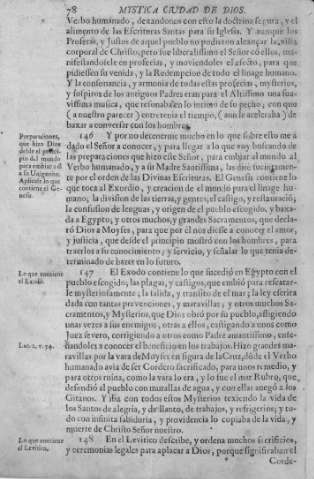 78 MISTICA CIUDAD DE DIOS.
Verbo humanado, dexandonos con esto la doctrina segura, y el
alimento de las Escrituras Santas para su Iglesia. Y aunque los
Profetas, y Justos de aquel pueblo no pudieron alcançar la vista
corporal de Christo, pero fue liberalissimo el Señor con ellos, ma-
nifestandosele en profecias, y moviendoles el afecto, para que
pidiessen su venida, y la Redempcion de todo el linage humano.
Y la consonancia, y armonia de todas estas profecias, mysterios,
y suspiros de los antiguos Padres eran para el Altissimo una sua-
vissima musica, que resonaba en lo intimo de su pecho, con que
(a nuestro parecer) entretenia el tiempo, (aun le aceleraba) de
baxar a conversar con los hombres.
146 Y por no detenerme mucho en lo que sobre esto me a
dado el Señor a conocer, y para llegar a lo que voy buscando de
las preparaciones que hizo este Señor, para embiar al mundo al
Verbo humanado, y a su Madre Santissima, las diré sucintamen-
te por el orden de las Divinas Escrituras. El Genesis contiene lo
que toca al Exordio, y creacion de el mundo para el linage hu-
mano, la division de las tierras, y gentes, el castigo, y restauració;
la confusion de lenguas, y origen de el pueblo escogido, y baxa-
da a Egypto; y otros muchos, y grandes Sacramentos, que decla-
ró Dios a Moyses, para que por el nos diesse a conocer el amor,
y justicia, que desde el principio mostró con los hombres, para
traerlos a su conocimiento, y servicio, y señalar lo que tenia de-
terminado de hazer en lo futuro.
147 El Exodo contiene lo que sucedió en Egypto con el
pueblo escogido, las plagas, y castigos, que embió para rescatar-
le mysteriosamente; la salida, y transito de el mar; la ley escrita
dada con tantas prevenciones, y maravillas; y otros muchos Sa-
cramentos, y Mysterios, que Dios obró por su pueblo, afligiendo
unas vezes a sus enemigos, otras a ellos, castigando a unos como
Juez severo, corrigiendo a otros como Padre amantissimo, ense-
ñandoles a conocer el beneficio en los trabajos. Hizo grandes ma-
ravillas por la vara de Moyses en figura de la Cruz, dóde el Verbo
humanado avia de ser Cordero sacrificado, para unos remedio, y
para otros ruina, como la vara lo era, y lo fue el mar Rubro, que
defendió al pueblo con murallas de agua, y con ellas anegó a los
Gitanos. Y iba con todos estos Mysterios texiendo la vida de
los Santos de alegria, y de llanto, de trabajos, y refrigerios; y to-
do con infinita sabiduria, y providencia lo copiaba de la vida, y
muerte de Christo Señor nuestro.
148 En el Levitico describe, y ordena muchos sacrificios,
y ceremonias legales para aplacar a Dios, porque significaban el
Corde-
Preparaciones,
que hizo Dios
desde el princi-
pio del mundo
para embiar a él
a su Unigenito.
Aplicase lo que
contiene el Ge-
nesis.
Lo que contiene
el Exodo.
Luc. 2. v. 34.
Lo que contiene
el Levitico.